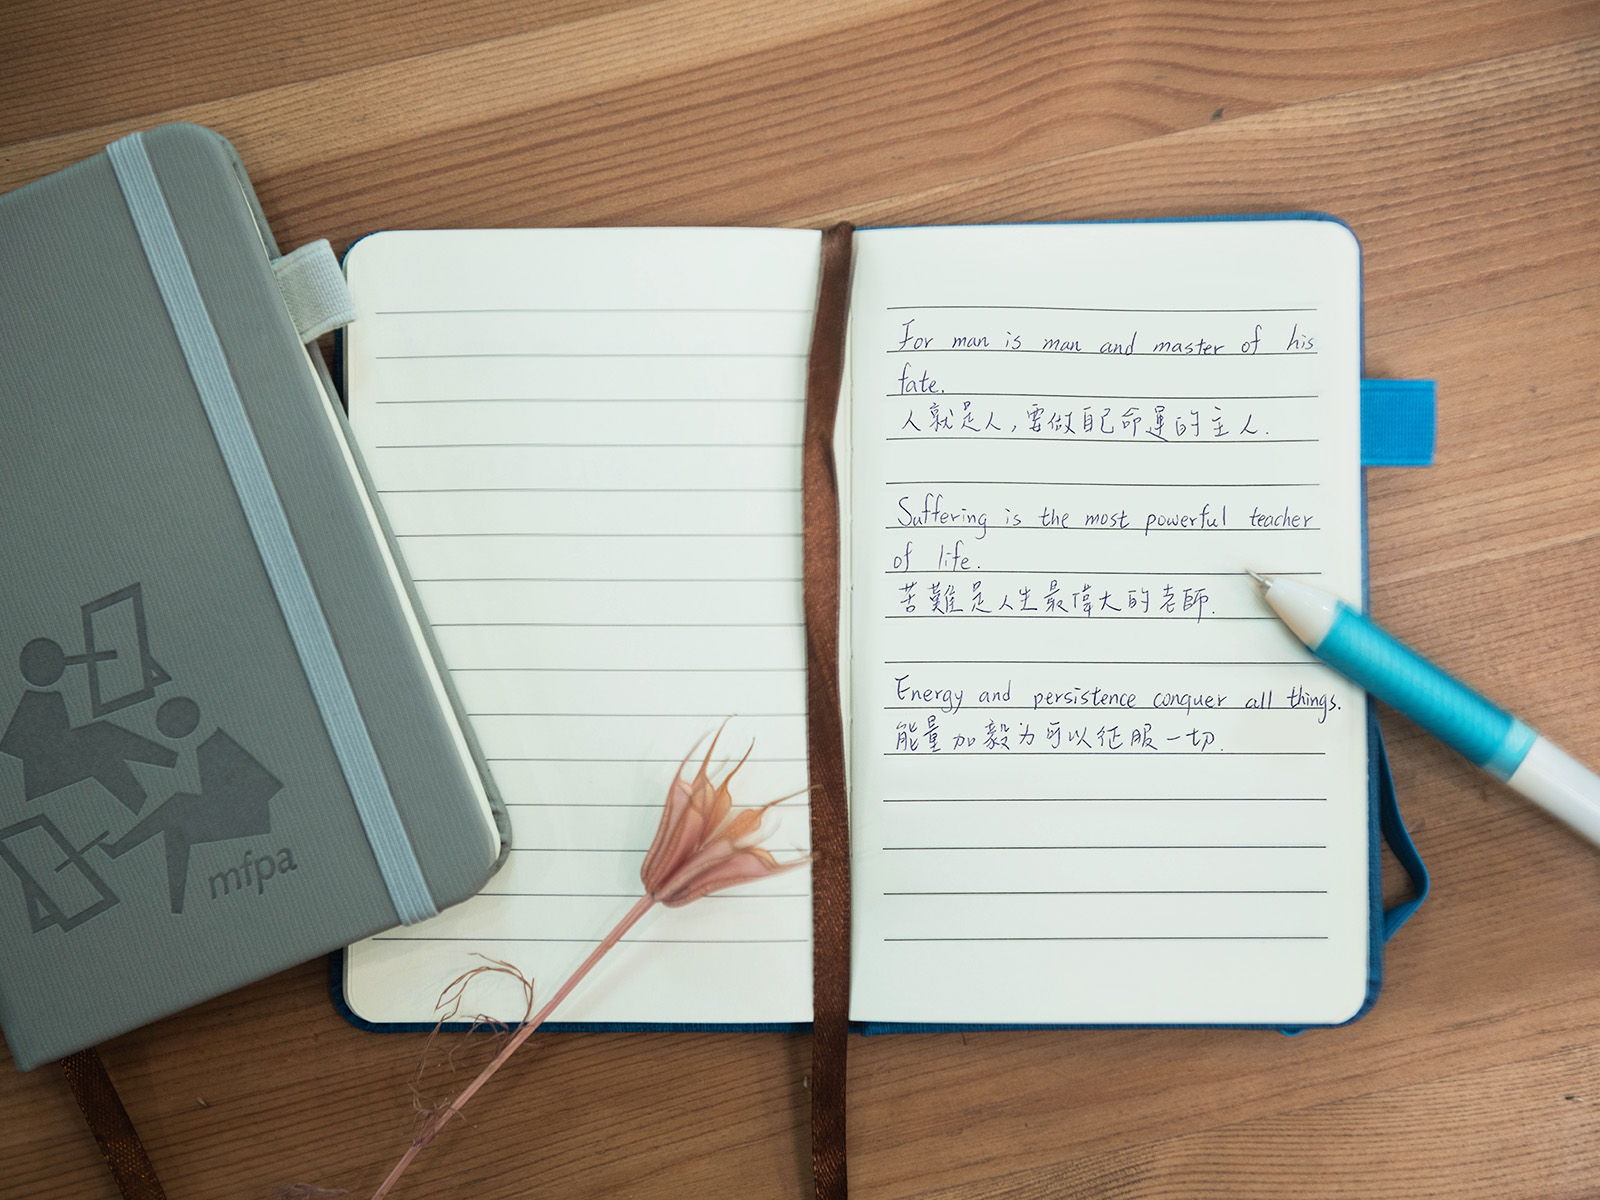 For man is man and master of his
fate.
人就是人，要做自己命運的主人.
Suffering is the most powerful teacher
of life.
苦難是人生最偉大的老師.
Energy and persistence conquer all things.
能量加毅为可以征服一切.
mfpa